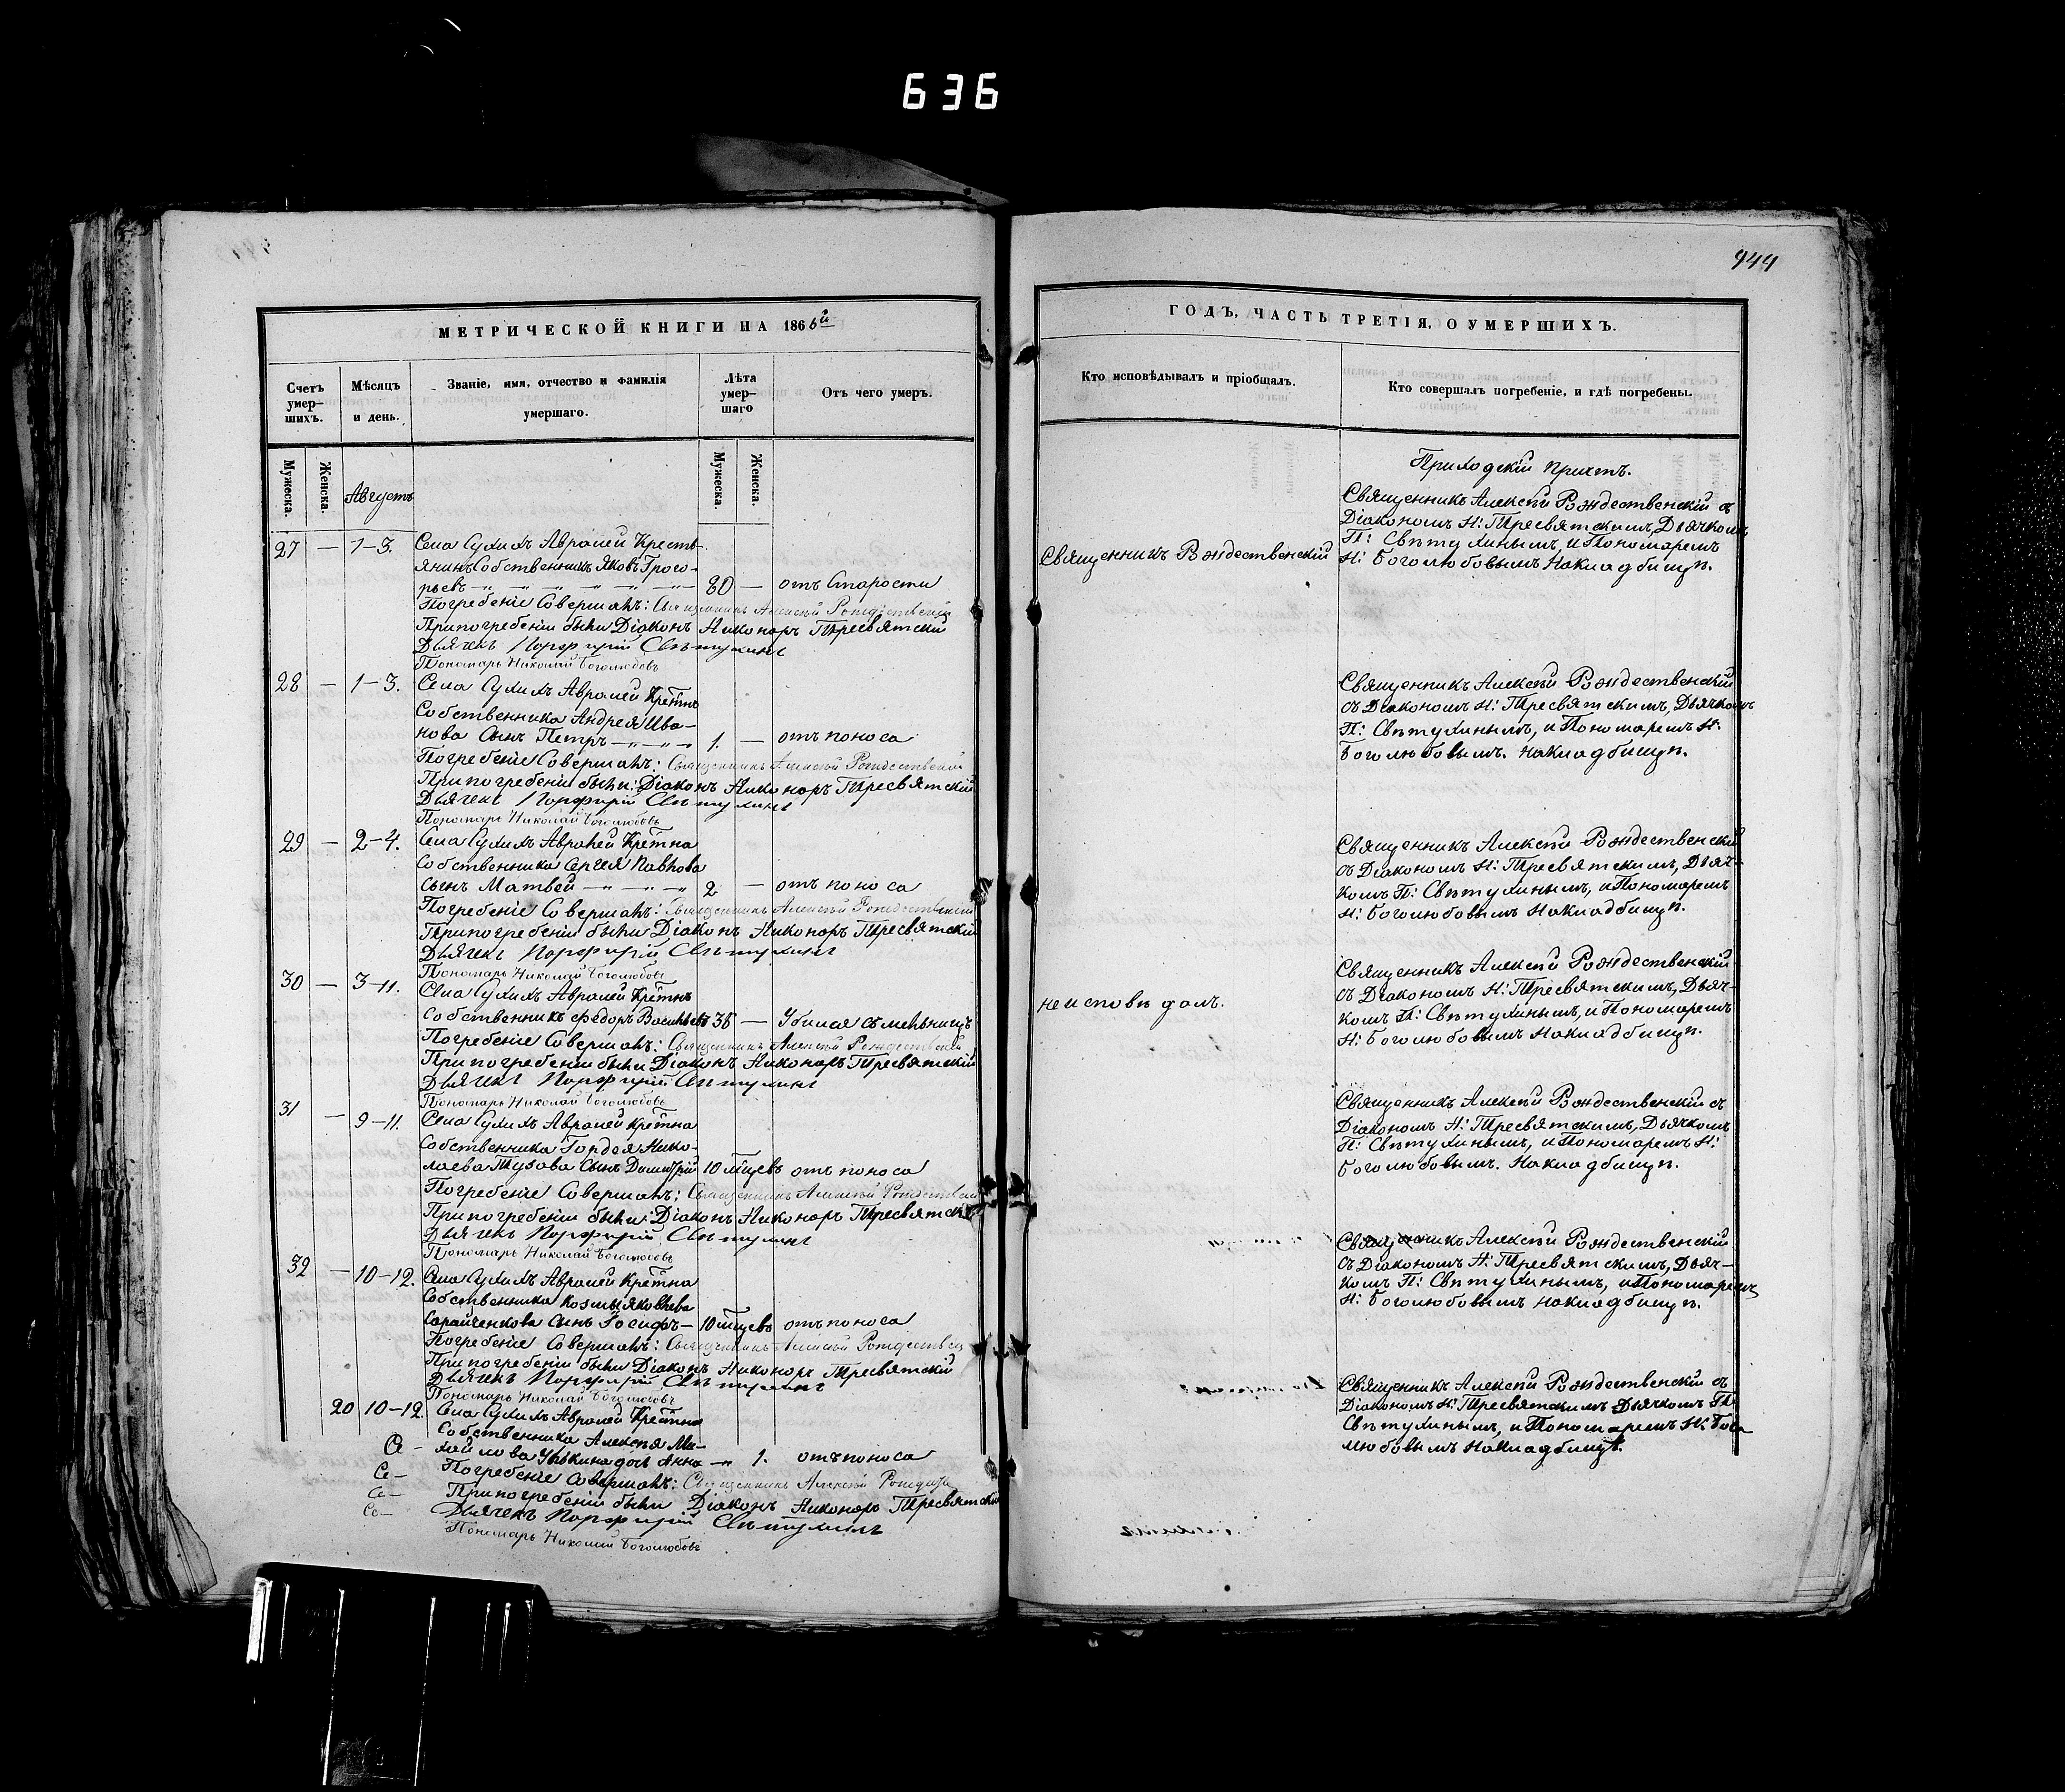 636
444
МЕТРИЧЕСКОЙ КНИГИ НА 1866й
Счетъ умер-
шихъ.
Мѣсяцъ
и день.
Званіе, имя, отчество и фамилія
умершаго.
Лѣта
умер-
шаго
Отъ чего умеръ.
Мужеска.
Женска.
Августъ
Мужеска.
Женска.
27 — 1-3. Села Сухихъ Авралей Кресть-
янинъ Собственникъ Яковъ Григо-
рьевъ 80 — отъ Старости
Погребеніе Совершалъ: Священникъ Алексѣй Рождественскій
При погребеніи были Діаконъ Никоноръ Тресвятскій
Дьячекъ Порфирій Свѣтухинъ
Пономарь Николай Боголюбовъ
28 — 1-3. Села Сухихъ Авралей Крестна
Собственника Андрея Ива-
нова Сынъ Петръ 1. — отъ поноса
Погребеніе Совершалъ: Священникъ Алексѣй Рождественскій
При погребеніи были: Діаконъ Никоноръ Тресвятскій
Дьячекъ Порфирій Свѣтухинъ
Пономарь Николай Боголюбовъ
29 — 2-4. Села Сухихъ Авралей Крестна
Собственника Сергея Павлова
Сынъ Матвей 2 — отъ поноса
Погребеніе Совершалъ: Священникъ Алексѣй Рождественскій
При погребеніи были Діаконъ Никоноръ Тресвятскій
Дьячекъ Порфирій Свѣтухинъ
Пономарь Николай Боголюбовъ
30 — 3-11. Села Сухихъ Авралей Крестнъ
Собственникъ Федоръ Васильевъ 36 — Убился съ мельницъ
Погребеніе Совершалъ: Священникъ Алексѣй Рождественскій
При погребеніи были Діаконъ Никоноръ Тресвятскій
Дьячекъ Порфирій Свѣтухинъ
Пономарь Николай Боголюбовъ
31 — 9-11. Села Сухихъ Авралей Крестна
Собственника Гордея Нико-
лаева Тузова Сынъ Димитрій 10 мѣцевъ отъ поноса
Погребеніе Совершалъ: Священникъ Алексѣй Рождественскій
При погребеніи были: Діаконъ Никоноръ Тресвятскій
Дьячекъ Порфирій Свѣтухинъ
Пономарь Николай Боголюбовъ
32 — 10-12. Села Сухихъ Авралей Крестна
Собственника Козмы Яковлева
Сынъ Іосифъ — 10 мѣцевъ отъ поноса
Погребеніе Совершалъ: Священникъ Алексѣй Рождествен
При погребеніи были Діаконъ Никоноръ Тресвятскій
Дьячекъ Порфирій Свѣтухинъ
Пономарь Николай Боголюбовъ
20 10-12. Села Сухихъ Авралей Крестна
Собственника Алексея Ми-
хайлова дочь Анна 1. отъ поноса
Погребеніе Совершалъ: Священникъ Алексѣй Рождест
При погребеніи были Діаконъ Никоноръ Тресвятскій
Дьячекъ Порфирій Свѣтухинъ
Пономарь Николай Боголюбовъ
ГОДЪ, ЧАСТЬ ТРЕТІЯ, О УМЕРШИХЪ.
Кто исповѣдывалъ и пріобщалъ.
Кто совершалъ погребеніе, и гдѣ погребены.
Священникъ Рождественскій
не исповѣданъ.
Приходскій причтъ.
Священникъ Алексѣй Рождественскій съ
Діакономъ Н: Тресвятскимъ, Дьячкомъ
П: Свѣтухинымъ, и Пономаремъ
Н: Боголюбовымъ На кладбищѣ.
Священникъ Алексѣй Рождественскій
съ Діакономъ Н: Тресвятскимъ, Дьячкомъ
П: Свѣтухинымъ, и Пономаремъ Н:
Боголюбовымъ. На кладбищѣ.
Священникъ Алексѣй Рождественскій
съ Діакономъ Н: Тресвятскимъ, Дьяч-
комъ П: Свѣтухинымъ, и Пономаремъ
Н: Боголюбовымъ На кладбищѣ.
Священникъ Алексѣй Рождественскій
съ Діакономъ Н: Тресвятскимъ, Дьяч-
комъ П: Свѣтухинымъ, и Пономаремъ
Н: Боголюбовымъ На кладбищѣ.
Священникъ Алексѣй Рождественскій съ
Діакономъ Н: Тресвятскимъ, Дьячкомъ
П: Свѣтухинымъ, и Пономаремъ Н:
Боголюбовымъ. На кладбищѣ.
Священникъ Алексѣй Рождественскій
съ Діакономъ Н: Тресвятскимъ, Дьяч-
комъ П: Свѣтухинымъ, и Пономаремъ
Н: Боголюбовымъ на кладбищѣ.
Священникъ Алексѣй Рождественскій съ
Діакономъ Н: Тресвятскимъ Дьячкомъ П:
Свѣтухинымъ, и Пономаремъ Н: Бого
любовымъ На кладбищѣ.